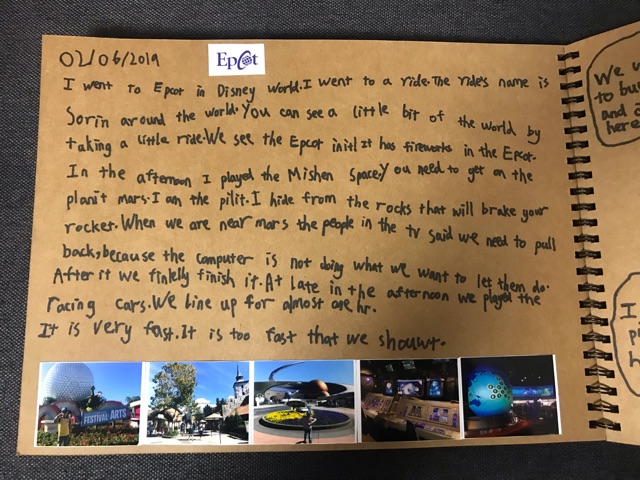 02/06/2019
Epcot
I went to Epcot in Disney world. I went to a ride. The ride's name is
Sorin around the world. You can see a little bit of the world by
taking a little ride. We see the Epcot in it! It has fireworks in the Epcot.
In the afternoon I played the Mishen Space. You need to get on the
planit mars. I am the pilit. I hide from the rocks that will brake your
rocket. When we are near mars the people in the tv said we need to pull
back, because the computer is not doing what we want to let them do.
After it we finlelly finish it. At late in the afternoon we played the
racing cars. We line up for almost one hr.
It is very fast. It is too fast that we shouwt.
FESTIVAL ARTS
We
to bu
and
here
I
p
h